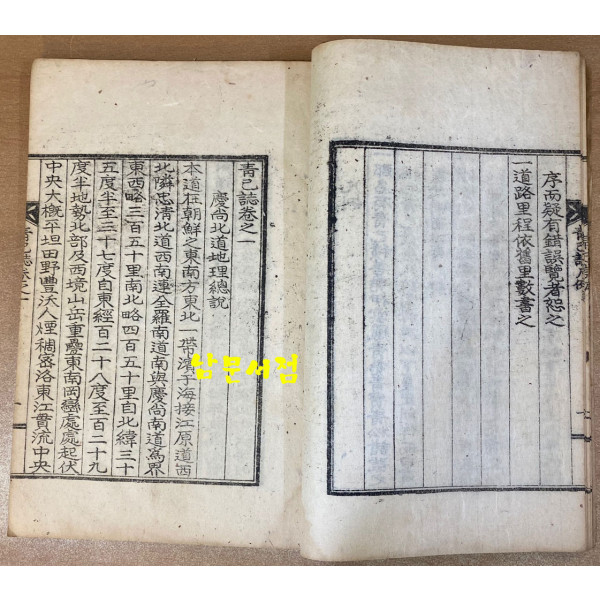 序而疑有錯誤覽者恕之
一道路里程依舊里數書之
靑己誌卷之一
慶尙北道地理總說
本道在朝鮮之東南方東北一帶濱于海接江原道西
北隣忠淸北道西南運全羅南道南與慶尙南道爲界
東西略三百五十里南北略四百五十里自北緯三十
五度半至三十七度自東經百二十八度至百二十九
度半地勢北部及西境山岳重疊東南岡巒處處起伏
中央大槪平坦田野豊沃人煙稠密洛東江貫流中央
남문서점